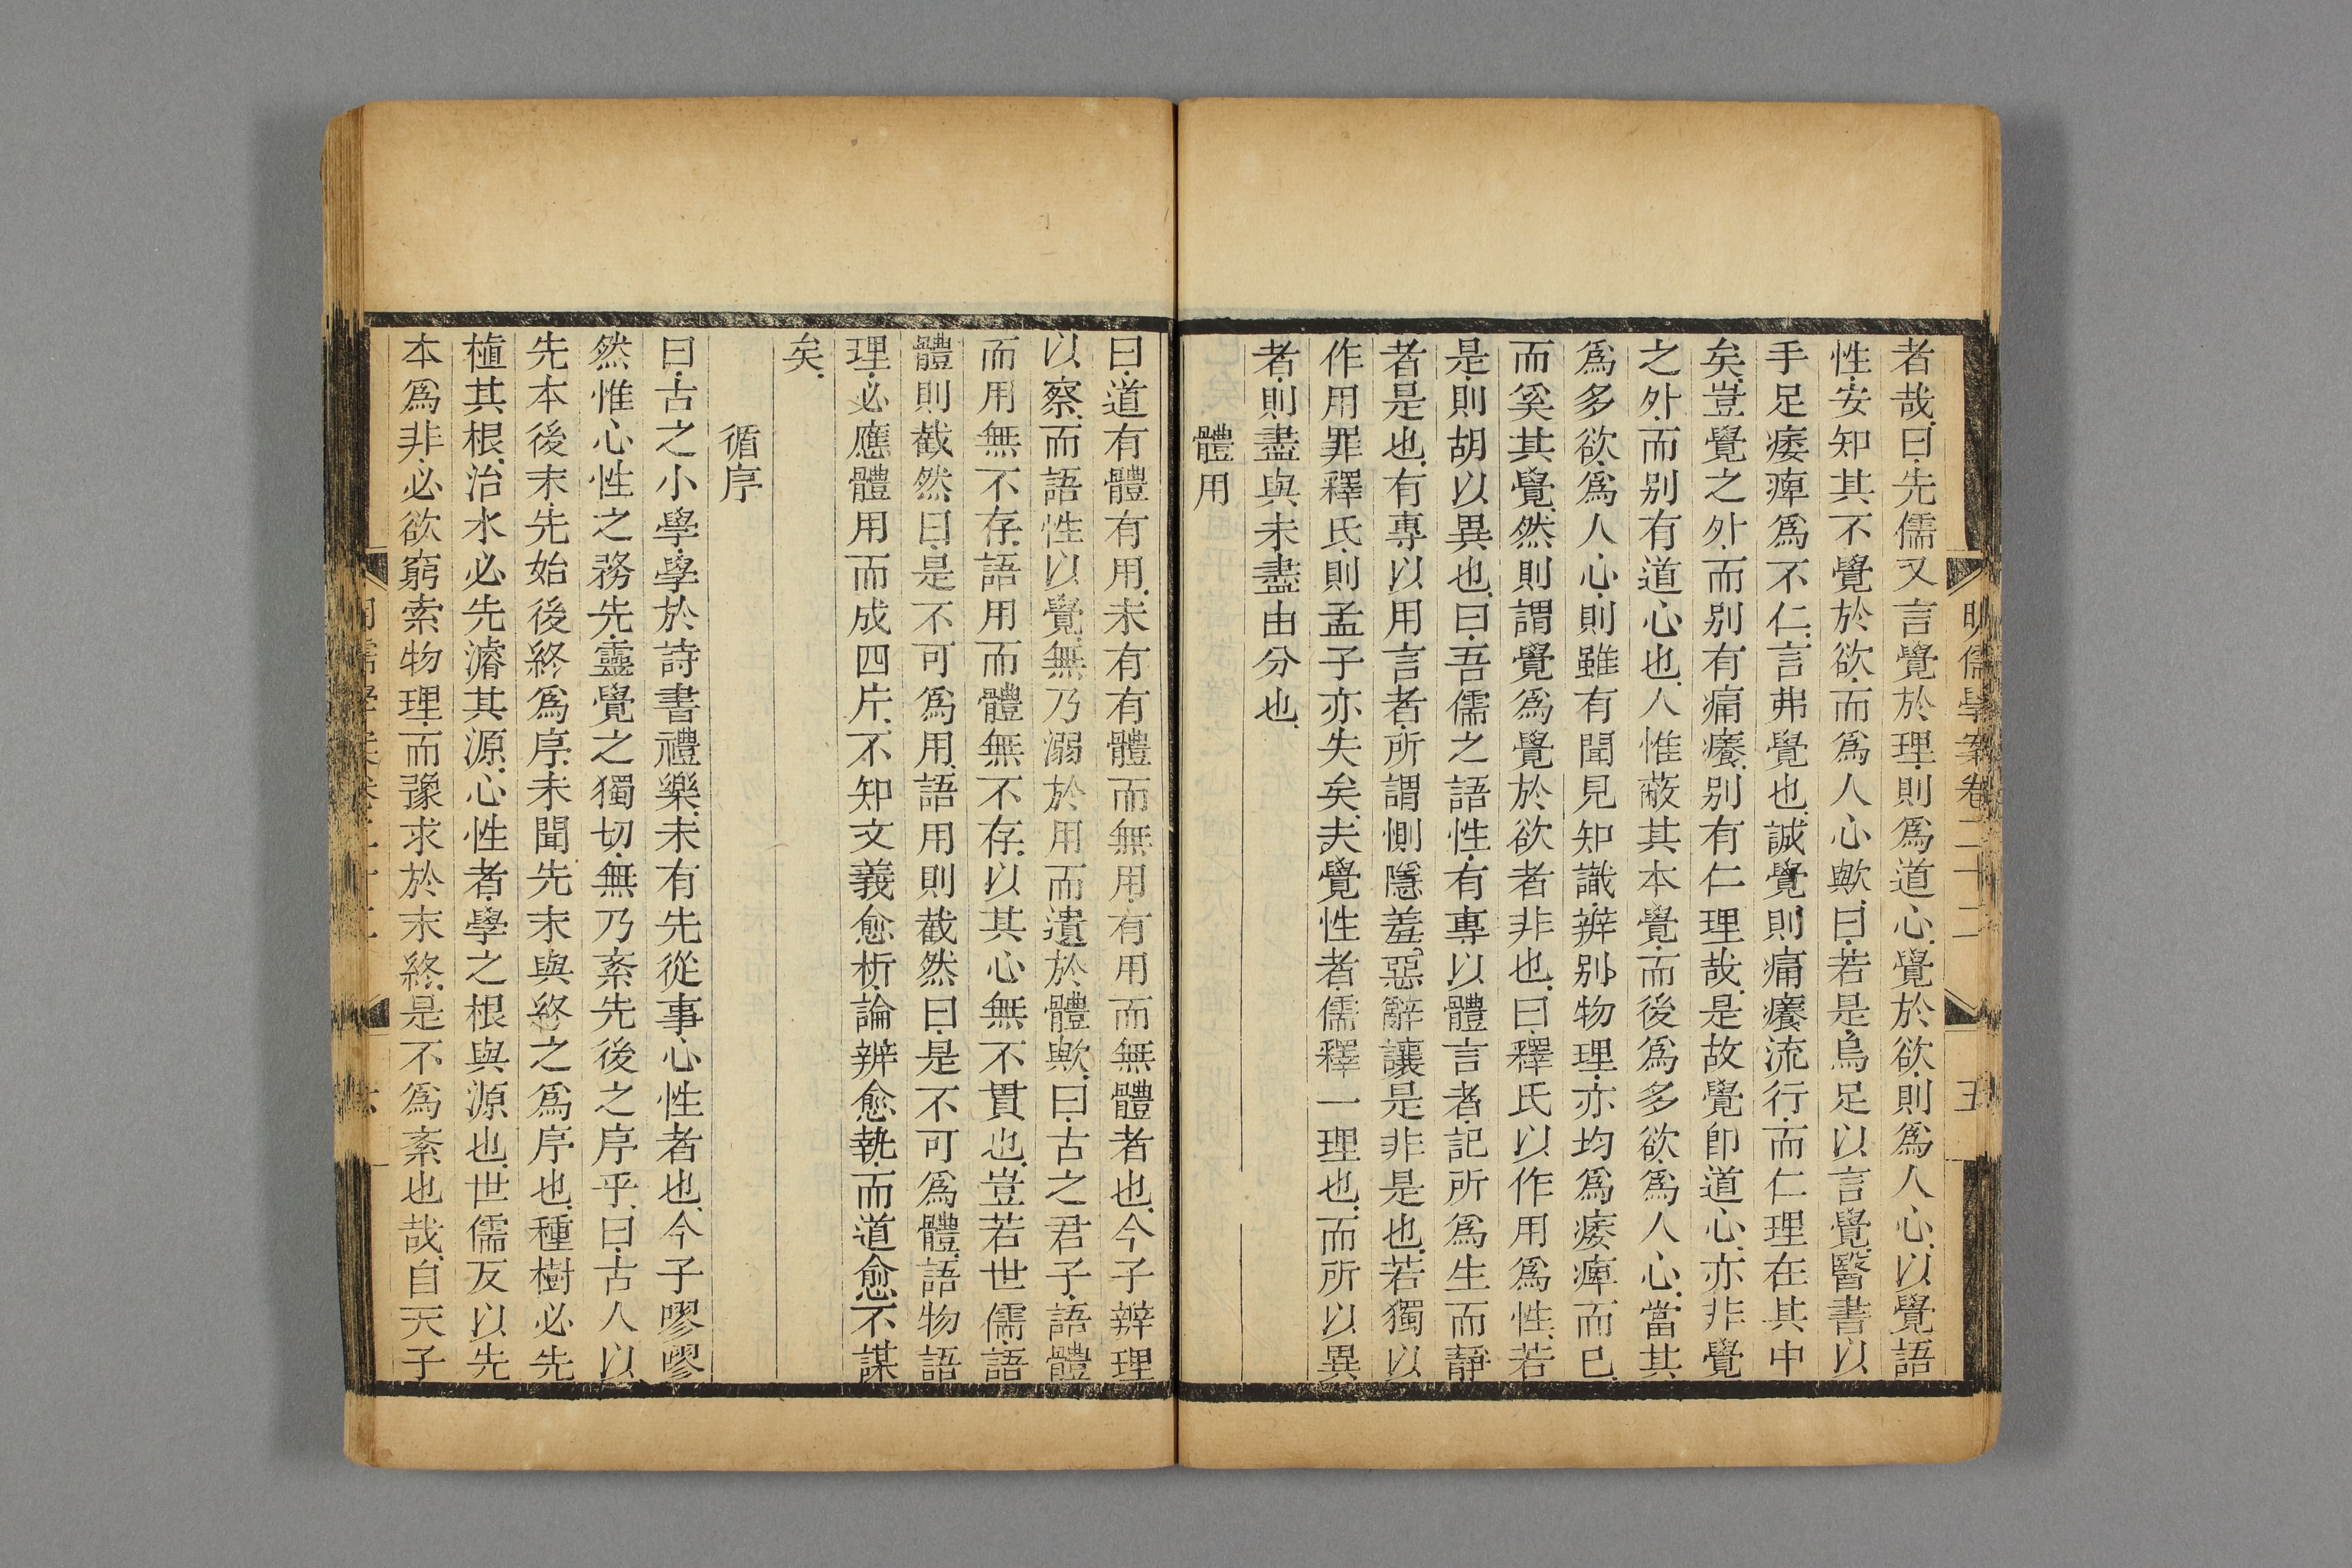 明儒學案卷二十二
五
者哉曰先儒又言覺於理則爲道心覺於欲則爲人心以覺語
性安知其不覺於欲而爲人心歟曰若是烏足以言覺醫書以
手足痿痺爲不仁言弗覺也誠覺則痛癢流行而仁理在其中
矣豈覺之外而别有痛癢别有仁理哉是故覺卽道心亦非覺
之外而别有道心也人惟蔽其本覺而後爲多欲爲人心當其
爲多欲爲人心則雖有聞見知識辨别物理亦均爲痿痺而已
而奚其覺然則謂覺爲覺於欲者非也曰釋氏以作用爲性若
是則胡以異也曰吾儒之語性有專以體言者記所爲生而靜
者是也有專以用言者所謂惻隱羞惡辭讓是非是也若獨以
作用罪釋氏則孟子亦失矣夫覺性者儒釋一理也而所以異
者則盡與未盡由分也
體用
曰道有體有用未有有體而無用有用而無體者也今子辨理
以察而語性以覺無乃溺於用而遺於體歟曰古之君子語體
而用無不存語用而體無不存以其心無不貫也豈若世儒語
體則截然曰是不可爲用語用則截然曰是不可爲體語物語
理必應體用而成四片不知文義愈析論辨愈執而道愈不謀
矣
循序
曰古之小學學於詩書禮樂未有先從事心性者也今子嘐嘐
然惟心性之務先靈覺之獨切無乃紊先後之序乎曰古人以
先本後末先始後終爲序未聞先末與終之爲序也種樹必先
植其根治水必先濬其源心性者學之根與源也世儒反以先
本爲非必欲窮索物理而豫求於末終是不爲紊也哉自天子